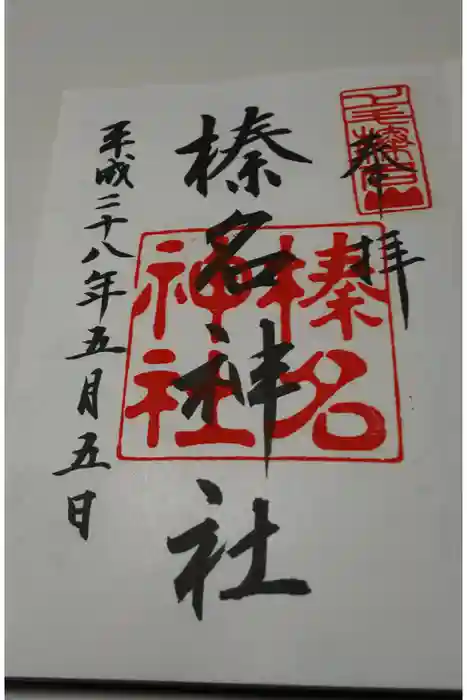 奉拝
榛名神社
平成二十八年五月五日
榛名
神社